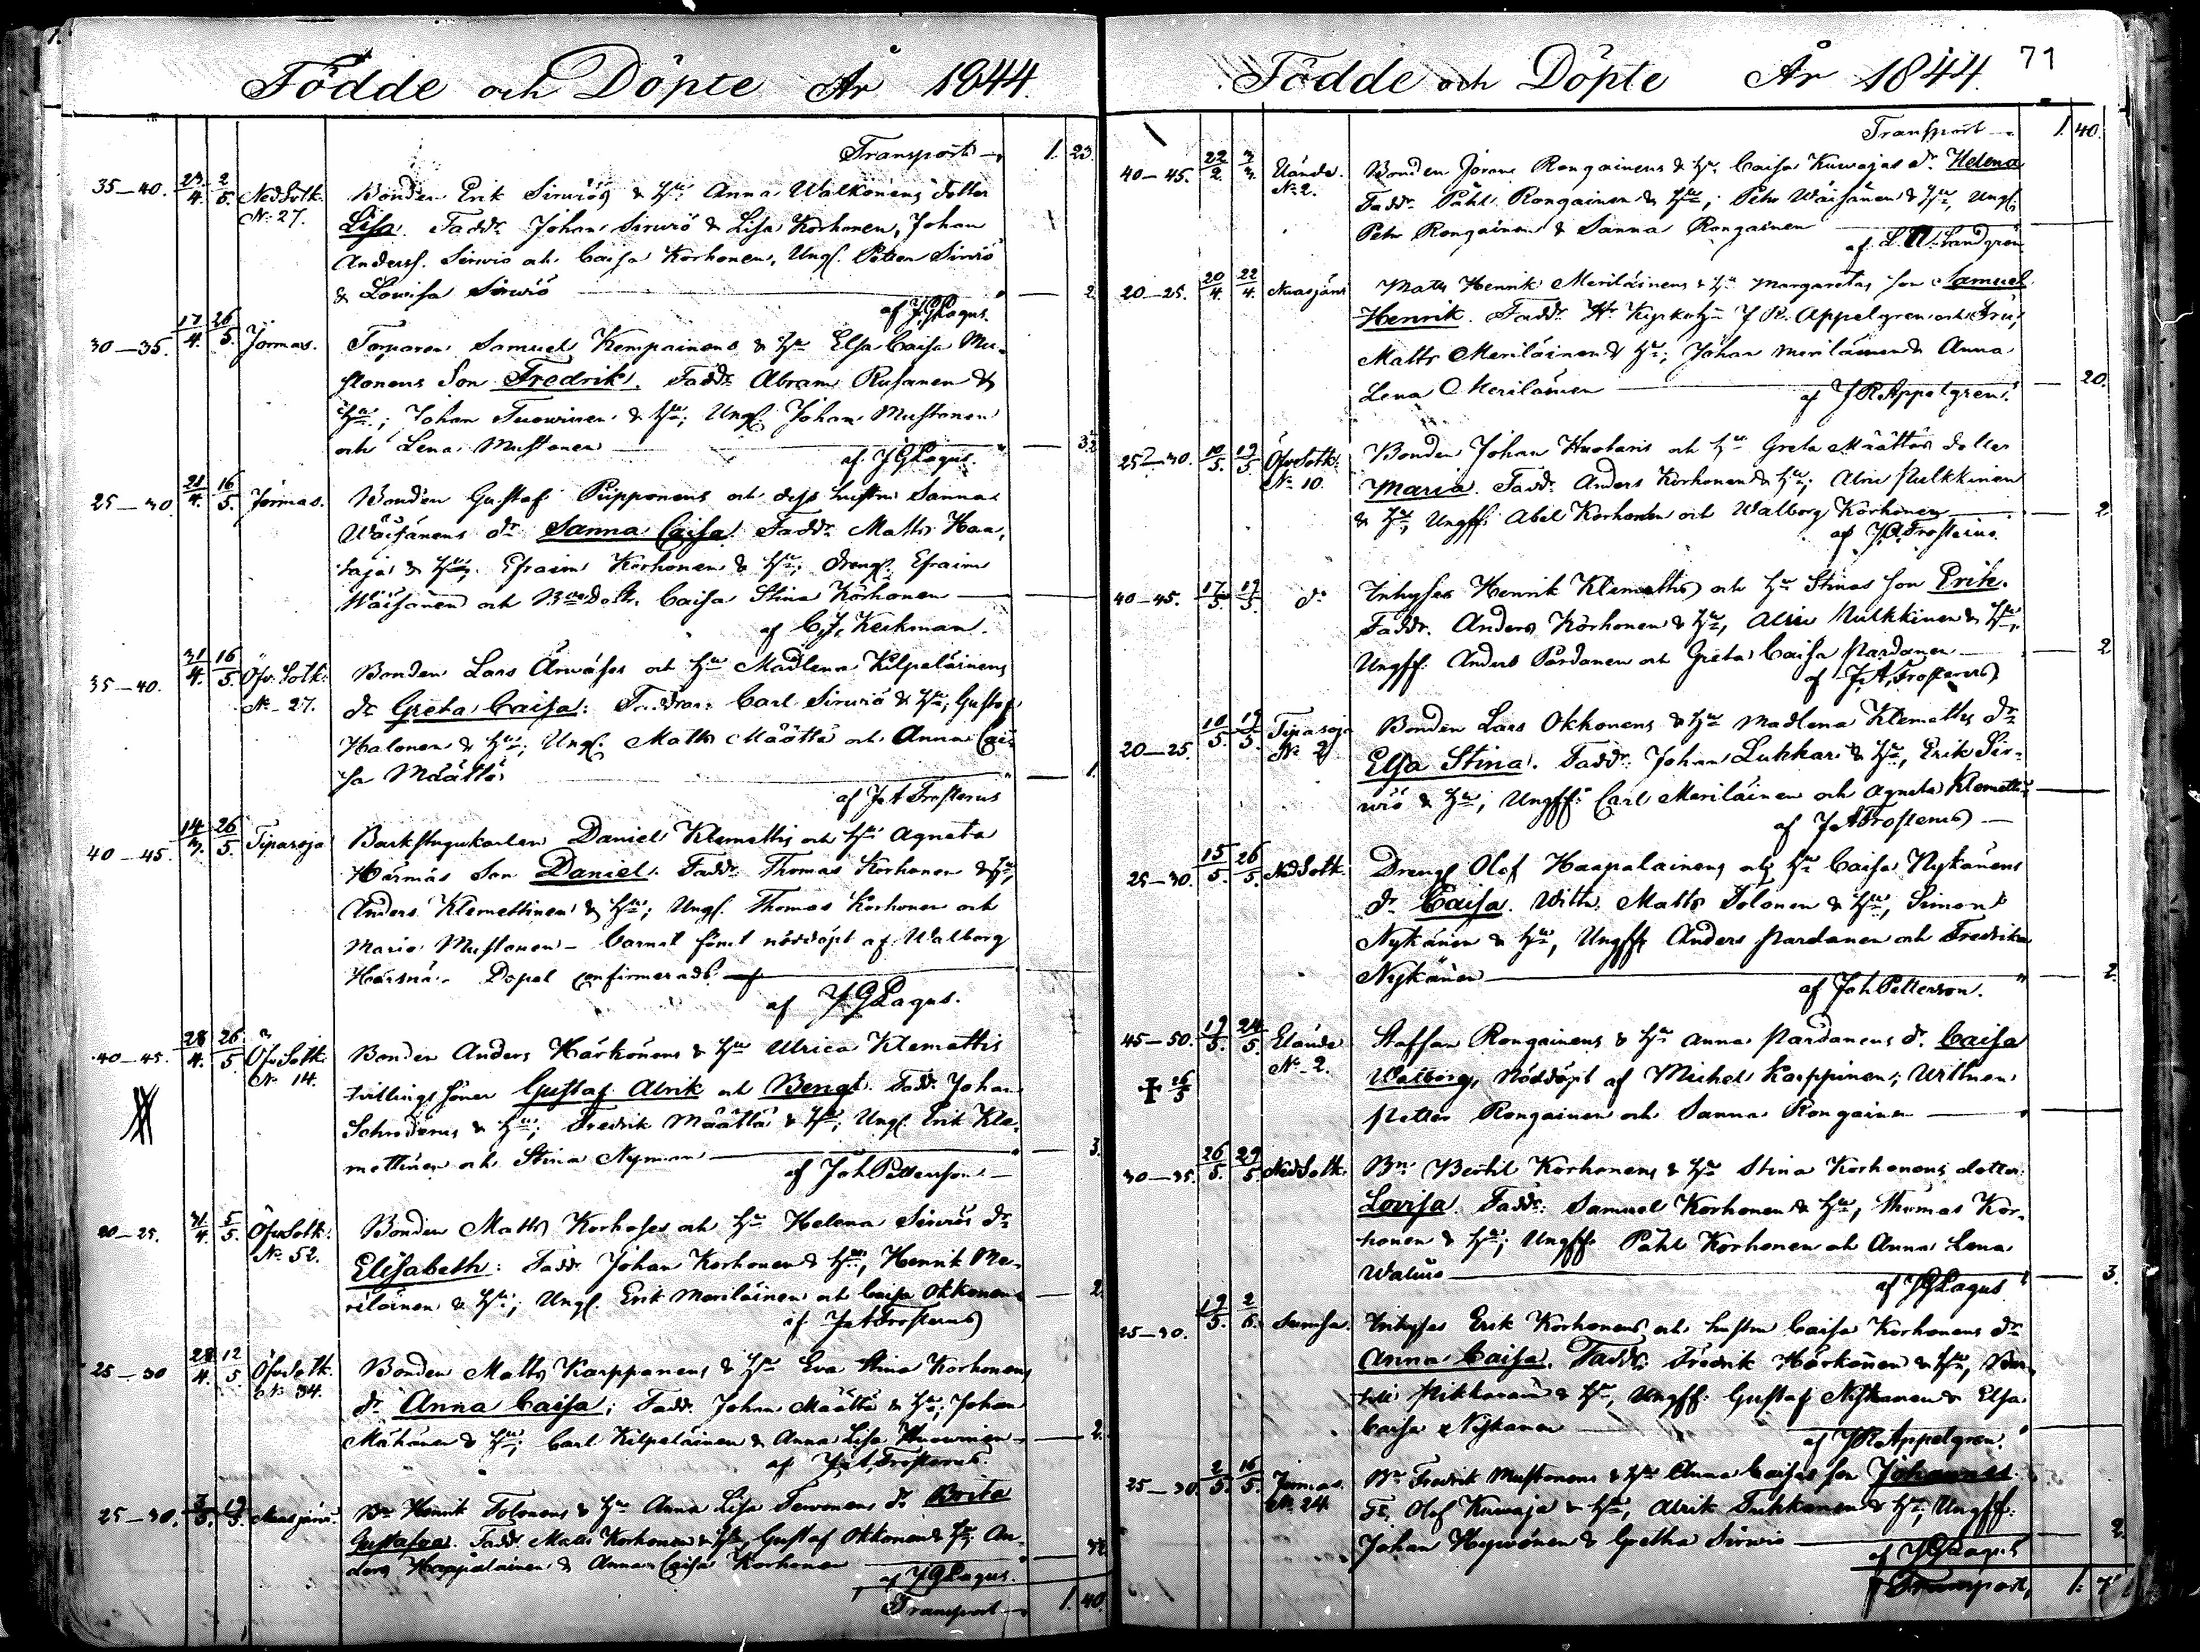 Födde och Döpte År 1844.
Transport 1. 23.
35–40. 23/4. 2/5. Ned Sotk. Bonden Erik Sirwiös & hu: Anna Walkonens dotter
No 27. Lisa. Fadd: Johan Sirwiö & Lisa Korhonen, Johan
Anderss. Sirwiö och Caisa Korhonen, Ungf. Petter Sirwiö
& Lowisa Sirwiö 2
af J G Lagus.
30–35. 17/4. 26/5. Jormas. Torparen Samuel Kempainens & hu Elsa Caisa Mu-
stonens Son Fredrik. Fadd: Abram Rusanen &
hu; Johan Tuowinen & hu; Ungf. Johan Mustonen
och Lena Mustonen
af J G Lagus.
25–30. 21/4. 16/5. Jormas. Bonden Gustaf Piipponens och dess hustru Sanna
Wäisänens dr Sanna Caisa. Fadd: Matts Haa-
taja & hu; Efraim Korhonen & hu; dreng. Efraim
Wäisänen och Caisa Stina Korhonen
af C. J. Keckman.
35–40. 31/4. 16/5. Öfv. Sotk: Bonden Lars och hu Madlena Kilpeläinens
No 27. dr Greta Caisa: Faddrar: Carl Sirwiö & hu; Gustaf
Halonen & hu; Ungf: Matts Määttä och Anna Cai-
sa Määttä 1.
af J A Frosterus
40–45. 14/3. 26/5. Tipasoja Backstugukarlen Daniel Klemettis och hu Agneta
Härmäs Son Daniel. Fadd: Thomas Korhonen & hu;
Anders Klemettinen & hu; Ungf. Thomas Korhonen och
Maria Mustonen – barnet nöddöpt af Walborg
Dopet confirmeradt
af J G Lagus.
40–45. 28/4. 26/5 Öfv Sotk: Bonden Anders Härkönens & hu Ulrica Klemettis
No 14. tvillings söner Gustaf Alrik och Bengt. Fadd. Johan
Schroderus & hu; Fredrik Määttä & hu; Ungf. Erik Kle-
mettinen och Stina Nyman 3.
af Joh Pettersson
20–25. 5/5. Öfv Sotk: Bonden Matts Korhoses och hu Helena Sirwiös dr
No 52. Elisabeth: Fadd. Johan Korhonen & hu, Henrik Me-
riläinen & hu; Ungf. Erik Meriläinen och Caisa Okkonen 2
af J A Frosterus
25–30 28/4. 12/5 Öfv Sotk. Bonden Matts Karppanens & hu Eva Stina Korhonens
No 34. dr Anna Caisa; Fadd. Johan Määttä & hu; Johan
Mähönen & hu; Carl Kilpeläinen & Anna Lisa 2.
af J. A. Frosterus.
25–30. Bn Henrik Tolonens & hu Anna Lisa Terwonens dr Brita
Gustafva. Fadd. Matts Korhonen & hu, Gustaf Okkonen & hu An-
ders Haapalainen & Anna Caisa Korhonen
af J G Lagus.
Transport 1. 40.
Födde och Döpte År 1844. 71
Transport 1. 40.
40–45. 22/2. Bonden Jöran Rongainens & hu. Caisa Kuwajas dr Helena
No 2. Fadd: Påhl Rongainen & hu; Pehr Wäisänen & hu, Ungf:
Petr Rongainen & Sanna Rongainen
af Sandgren
20–25. 20/4. 22/4. Naasjärvi Matts Henrik Meriläinens & hu Margaretas son Samuel
Henrik. Fadd: Hr Kyrkoh: J R. Appelgren och Fru,
Matts Meriläinen & hu; Johan Meriläinen & Anna
Lena Meriläinen 20.
af J R Appelgren.
25–30. 10/5. 19/5 Öfv Sotk: Bonden Johan Huotaris och hu Greta Määttäs dotter
No 10. Maria. Fadd: Anders Korhonen & hu; Alric Pulkkinen
& hu, Ungff: Abel Korhonen och Walborg Korhonen 2
af J A Frosterus.
40–45. 17/5. 19/5. do Inhyses Henrik Klemettis och hu Stinas son Erik.
Fadd: Anders Korhonen & hu, Alric Pulkkinen & hu,
Ungff. Anders Pardanen och Greta Caisa Pardanen 2
af J. A. Frosterus
20–25. 10/5. 19/5. Tipasoja Bonden Lars Okkonens & hu Madlena Klemettis dr
No 2 Elsa Stina. Fadd: Johan Lukkari & hu, Erik Sir-
wiö & hu; Ungff: Carl Meriläinen och Agneta Klemetti
af J A Frosterus
25–30. 15/5. 26/5. Ned Sotk. Dreng Olof Haapalainens och hu Caisa Nykänens
dr Caisa. Wittn: Matts Tolonen & hu, Simon
Nykänen & hu, Ungff Anders Pardanen och Fredrika
Nykänen 2.
af Joh Petterson.
45–50. 19/5. 24/5. Staffan Rongainens & hu Anna Pardanens dr Caisa
No 2. Walborg, Nöddöpt af Michel Karppinen; Wittnen
Petter Rongainen och Sanna Rongainen
30–35. 26/5. 29/5. Ned Sotk. Bn: Bertil Korhonens & hu Stina Korhonens dotter
Lovisa. Fadd: Samuel Korhonen & hu, Thomas Kor-
honen & hu; Ungff: Påhl Korhonen och Anna Lena
3.
af J G Lagus
25–30. 19/5. 2/6. Sumsa. Inhyses Erik Korhonens och hustru Caisa Korhonens dr
Anna Caisa. Fadd: Fredrik Härkönen & hu,
& hu, Ungff: Gustaf Niskanen & Elsa
Caisa Niskanen
af J R Appelgren.
25–30. 2/5. 16/5. Jormas. Bn Fredrik Mustonens & hu Anna Caisas son Johannes.
No 24. Fr. Olof Kuwaja & hu, Alrik Tuhkanen & hu, Ungff:
Johan Hywönen & Gretha Sirwiö 2
af J G Lagus
Transport,